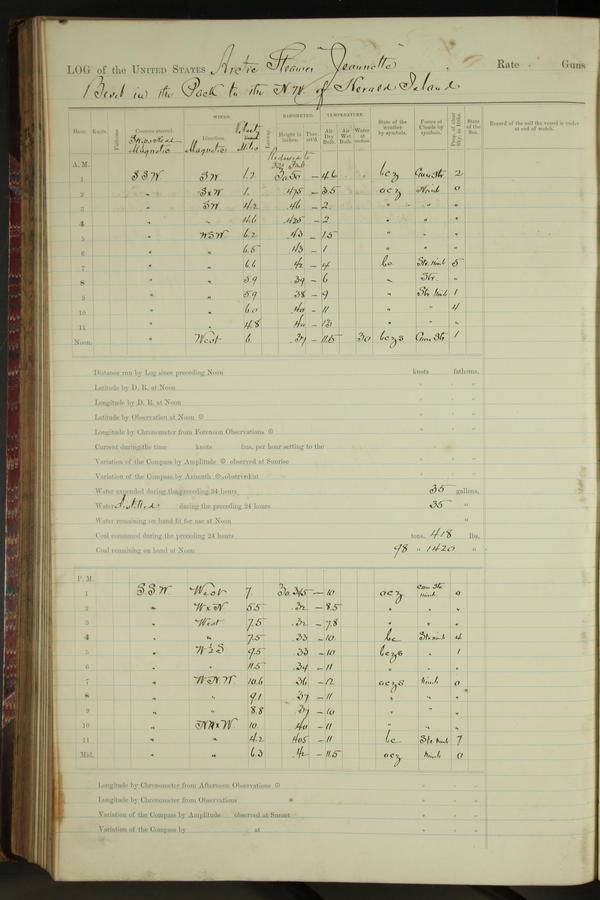 LOG of the UNITED STATES Arctic Steamer "Jeannette" Rate Guns
Beset in the Pack to the N.W. of Herald Island
WINDS. BAROMETER. TEMPERATURE.
Hour. Knots. Fathoms. Courses steered. Direction. Velocity Miles Leeway. Height in inches. Ther. att'd. Air Dry Bulb. Air Wet Bulb. Water at surface. State of the weather by symbols. Forms of Clouds by symbols. Prop. of clear Sky, in 10ths. State of the Sea. Record of the sail the vessel is under at end of watch.
Magnetic Magnetic
Reduced to
A. M.
1 SSW SW 1.2 30.50 - 4.6 bcz Cum Str 2
2 " SxW 1. .475 - 3.5 ocz Nimb 0
3 " SW 4.2 .46 - 2 " " "
4 " " 4.6 .425 - 2 " " "
5 " WSW 6.2 .43 - 1.5 " " "
6 " " 6.5 .43 - 1 " " "
7 " " 6.6 .42 - 4 bc Str. Nimb 5
8 " " 5.9 .39 - 6 " Str. "
9 " " 5.9 .38 - 9 " Str Nimb 1
10 " " 6.0 .40 - 11 " " 4
11 " " 4.8 .40 - 13 " " "
Noon. " West 6. .37 - 11.5 30 bczs Cum Str 1
Distance run by Log since preceding Noon knots fathoms.
Latitude by D. R. at Noon
Longitude by D. R. at Noon
Latitude by Observation at Noon ☉
Longitude by Chronometer from Forenoon Observations ☉
Current during the time knots fms. per hour setting to the
Variation of the Compass by Amplitude ☉ observed at Sunrise
Variation of the Compass by Azimuth ☉ observed at
Water expended during the preceding 24 hours 35 gallons.
Water distilled during the preceding 24 hours 35 "
Water remaining on hand fit for use at Noon "
Coal consumed during the preceding 24 hours tons. 418 lbs.
Coal remaining on hand at Noon 98 " 1420 "
P. M.
1 SSW West 7. 30.345 - 10 ocz Cum Str Nimb 0
2 " WxN 5.5 .32 - 8.5 " " "
3 " West 7.5 .32 - 7.8 " " "
4 " " 7.5 .33 - 10 bc Str nimb 4
5 " W½S 9.5 .33 - 10 bczs " 1
6 " " 11.5 .34 - 11 " "
7 " WNW 10.6 .36 - 12 oczs Nimb 0
8 " " 9.1 .37 - 11 " " "
9 " " 8.8 .37 - 10 " " "
10 " NWxW. 10. .40 - 11 " " "
11 " " 4.2 .405 - 11 bc Str Nimb 7
Mid. " " 6.3 .42 - 11.5 ocz Nimb 0
Longitude by Chronometer from Afternoon Observations ☉
Longitude by Chronometer from Observations *
Variation of the Compass by Amplitude observed at Sunset
Variation of the Compass by at